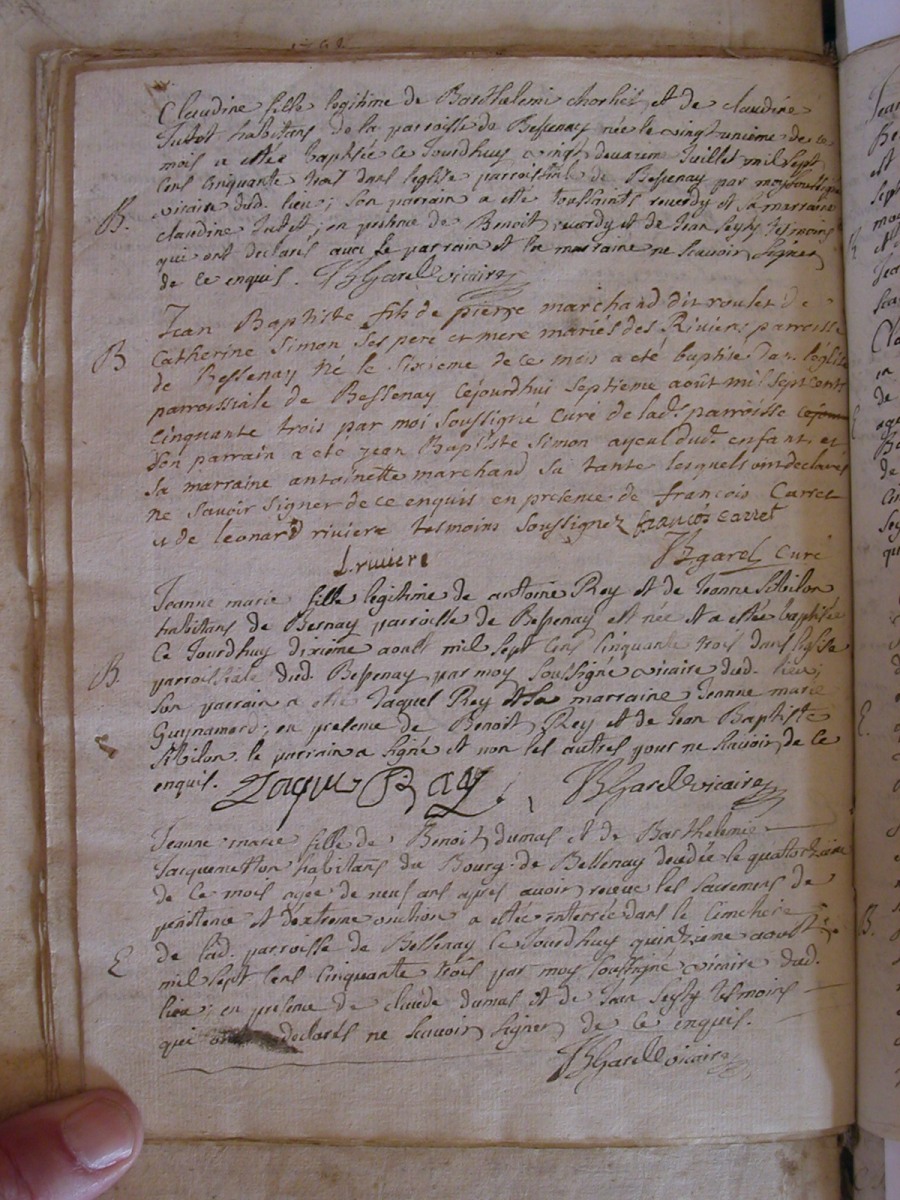 Claudine fille legitime de Barthelemi et de claudine
Jutet habitans de la parroisse de Bessenay née le vingt unieme de ce
mois a estée baptisée ce Jourdhuy vingt deuxiem Juillet mil sept
cens cinquante trois dans leglise parroissiale de Bessenay par moy soussigné
B. vicaire dud. lieu; son parrain a esté toussaints revordy et sa marraine
claudine Jutet; en presence de Benoit revordy et de Jean Seysty tesmoins
qui ont declarés avec le parrain et la marraine ne scavoir signer
de ce enquis. BGarel vicaire
Jean Baptiste fils de pierre marchand dit roulet de
B Catherine Simon ses pere et mere mariés des Rivieres parroisse
de Bessenay né le sixieme de ce mois a été baptisé dans l'église
parroissiale de Bessenay cejourdhui septieme août mil sept cents
cinquante trois par moi soussigné curé de lad. parroisse
son parrain a été jean Baptiste Simon ayeul dud. enfant, et
sa marraine antoinette marchand sa tante lesquels ont declarés
ne savoir signer de ce enquis en presence de françois Carret
et de leonard riviere tesmoins soussignez françois carret
L riviere BGarel curé
Jeanne marie fille legitime de antoine Rey et de Jeanne Sibilon
habitans de Bernay parroisse de Bessenay est née et a estée baptisée
ce Jourdhuy dixieme aoust mil sept cens cinquante trois dans leglise
B parroissiale dud. Bessenay par moy soussigné vicaire dud. lieu;
son parrain a esté Jaques Rey et sa marraine Jeanne marie
Guynamard; en presence de Benoit Rey et de Jean Baptiste
Sibilon le parrain a signé et non les autres pour ne scavoir, de ce
enquis. Jaque Ray BGarel vicaire
Jeanne marie fille de Benoit dumas et de Barthelemie
Jacquemetton habitans du Bourg de Bessenay decedée le quatorzieme
de ce mois agée de neuf ans apres avoir receue les sacremens de
penitence et dextreme onction a estée enterrée dans le Cimetiere
E de lad. parroisse de Bessenay ce Jourdhuy quinzieme aoust
mil sept cens cinquante trois par moy soussigné vicaire dud.
lieu; en presence de claude dumas et de Jean Seysty tesmoins
qui declarés ne scavoir signer de ce enquis.
BGarel vicaire